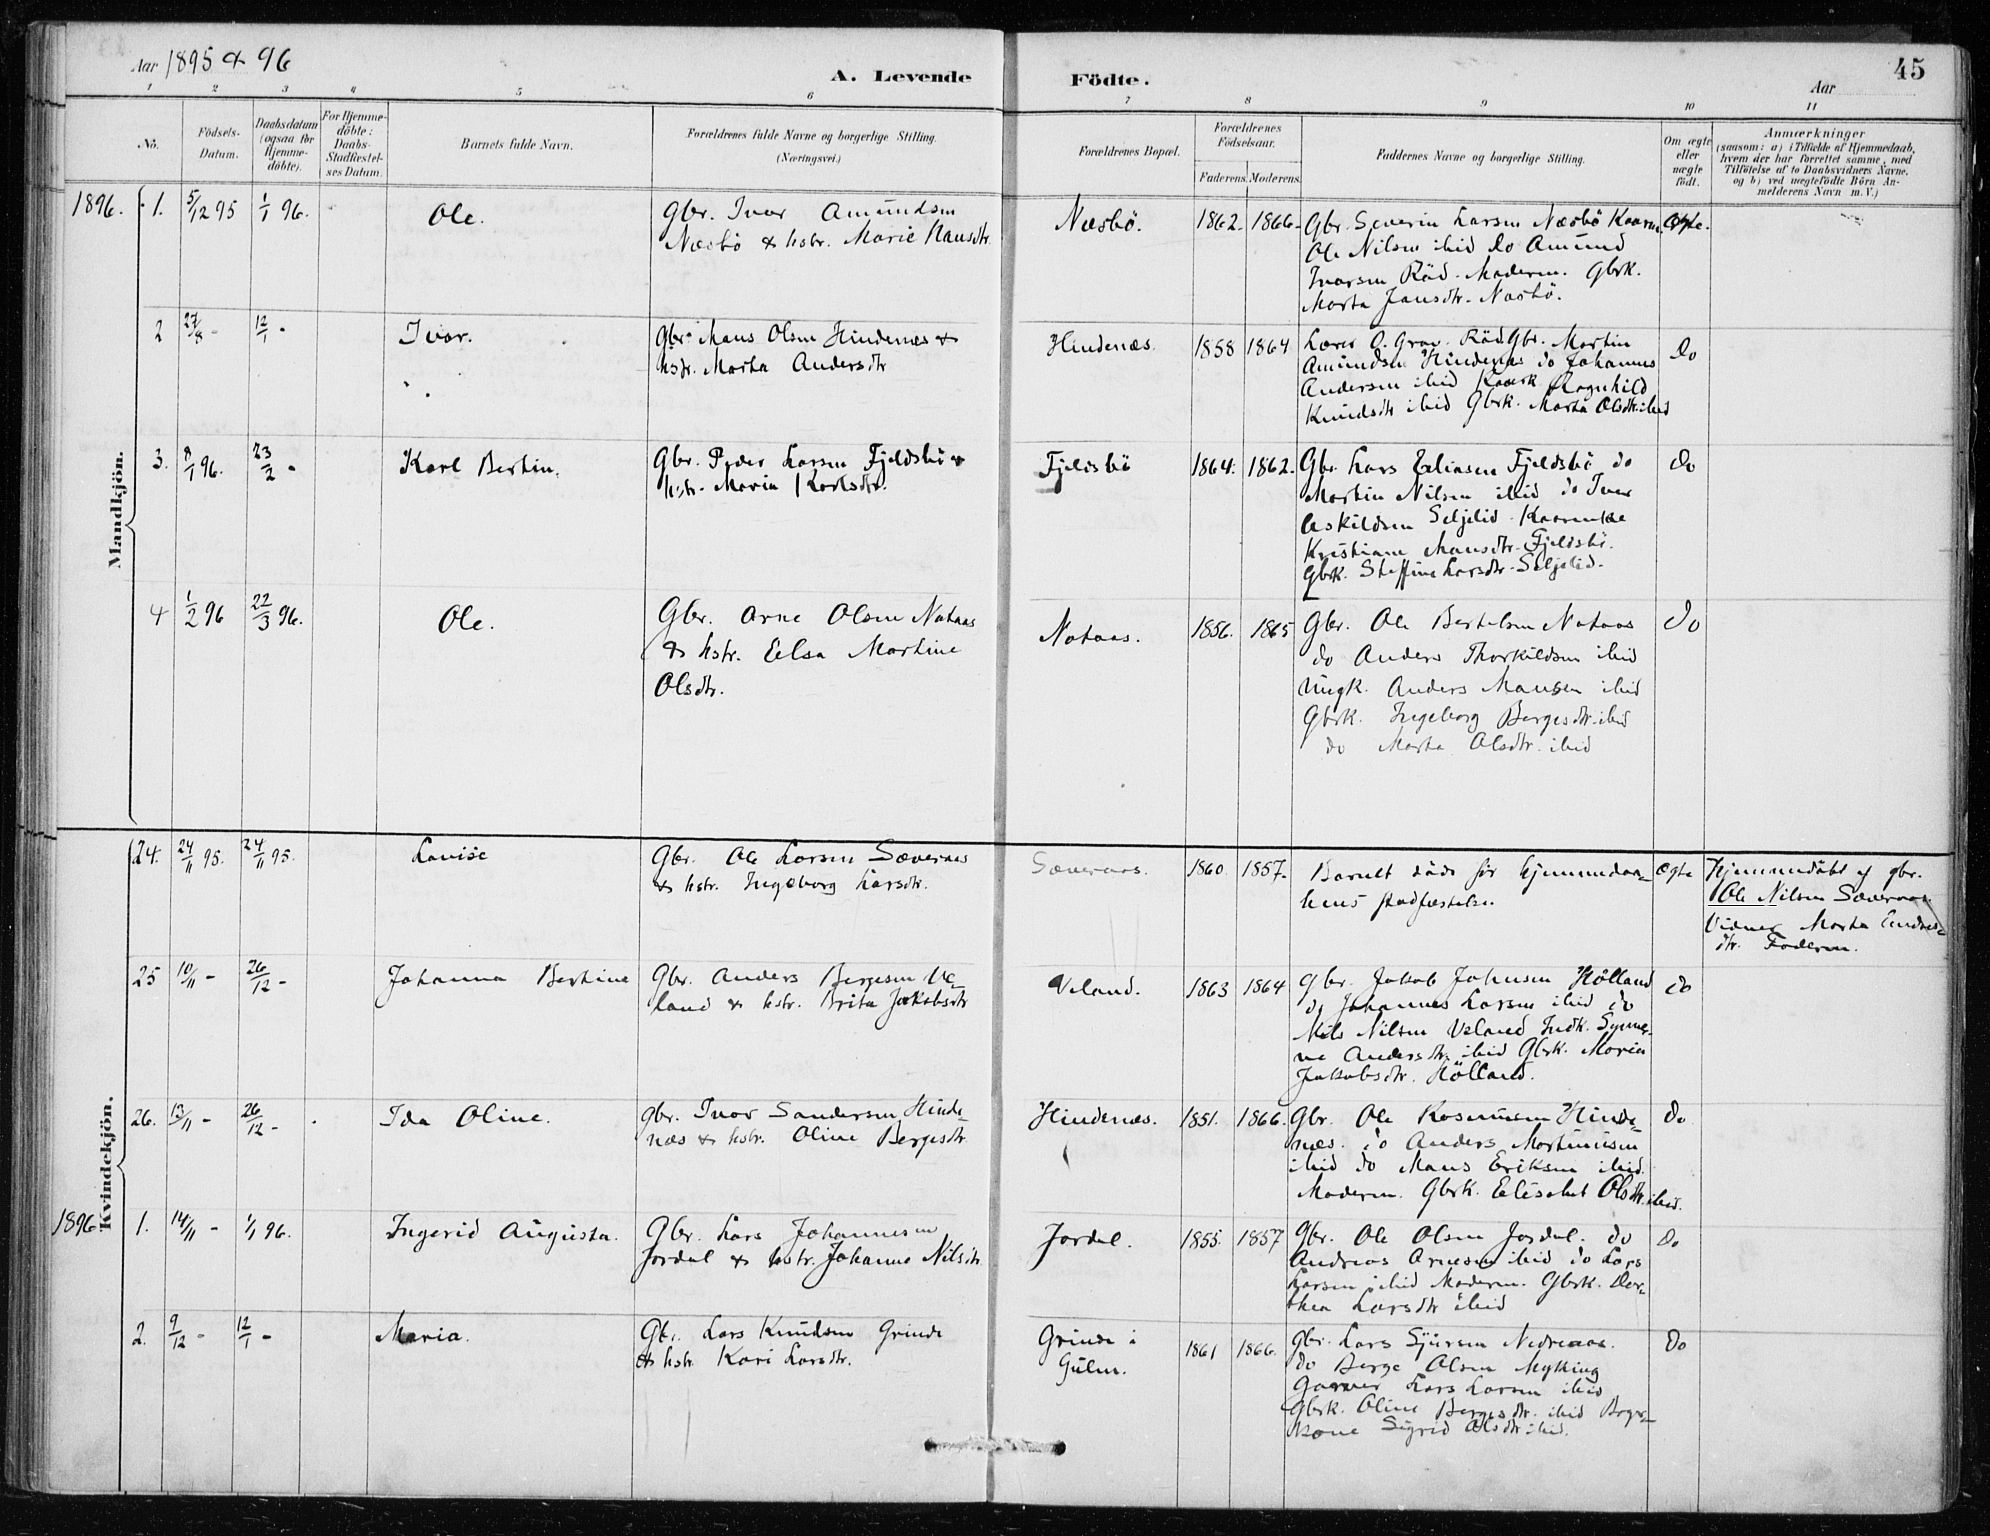 Aar 1895 & 96
A. Levende Födte.
Aar
45
1 2 3 4 5 6 7 8 9 10 11
No.
Födsels-Datum.
Daabsdatum (ogsaa for Hjemme-döbte).
For Hjemme-döbte: Daabs-Stadfæstel-ses Datum.
Barnets fulde Navn.
Forældrenes fulde Navne og borgerlige Stilling.
(Næringsvei.)
Forældrenes Bopæl.
Forældrenes Födselsaar.
Faderens. Moderens.
Faddernes Navne og borgerlige Stilling.
Om ægte eller uægte födt.
Anmærkninger
(saasom: a) i Tilfælde af Hjemmedaab,
hvem der har forrettet samme, med
Tilföielse af to Daabsvidners Navne.
og b) ved uægtefödte Börn An-
melderens Navn m. V.)
Mandkjön.
1896. 1. 5/12 95 1/1 96. Ole.
Gbr. Ivar Amundsen
Næsbö & hstr. Marie Hansdtr.
Næsbö. 1862. 1866.
Gbr. Severin Larsen Næsbö Kaarm.
Ole Nilsen ibid do Amund
Ivarsen Räd. Moderen. Gbrk.
Marta Jansdtr. Næsbö.
Ægte.
2 27/8 - 12/1 - Ivar.
Gbr. Mans Olsen Hindenæs &
hstr. Marta Andersdtr
Hindenæs. 1858 1864
Lærer O. Grav. Räd Gbr. Martin
Amundsen Hindenæs do Johannes
Andersen ibid Kaark. Ragnhild
Knudsdtr ibid Gbrk. Marta Olsdtr. ibid
do
3. 8/1 96. 23/2 - Karl Bertin.
Gbr. Peder Larsen Fjeldsbö &
hstr. Maria Karlsdtr.
Fjeldsbö 1864. 1862.
Gbr. Lars Eliasen Fjeldsbö do
Martin Nilsen ibid do Iver
Askildsen Seljelid. Kaarenke
Kristiane Mansdtr. Fjeldsbö.
Gbrk. Steffine Larsdtr. Seljelid.
do
4 1/2 96 22/3 96. Ole.
Gbr. Arne Olsen Nataas
& hstr. Elsa Martine
Olsdtr.
Nataas. 1856. 1865
Gbr. Ole Bertelsen Nataas
do Anders Thorkildsen ibid
Ungk. Anders Mansen ibid
Gbrk. Ingeborg Bergesdtr. ibid
do Marta Olsdtr. ibid
do
Kvindekjön.
24. 24/11 95. 24/11 95. Lovise
Gbr. Ole Larsen Sæveraas
& hstr. Ingeborg Larsdtr.
Sæveraas. 1860. 1857.
Barnet döde för hjemmedaa-
bens stadfæstelse.
Ægte
Hjemmedöbt af gbr.
Ole Nilsen Sæveraas.
Vidner Marta Endres-
dtr. Faderen.
25 10/11 - 26/12 - Johanna Bertine
Gbr. Anders Bergesen Ve-
land & hstr. Brita Jakobsdtr
Veland. 1863 1864
Gbr. Jakob Johnsen Hölland
do Johannes Larsen ibid do
Nils Nilsen Veland Indk. Synne-
ve Andersdtr. ibid Gbrk. Maria
Jakobsdtr. Hölland.
do
26. 13/11 - 26/12 - Ida Oline.
Gbr. Ivar Sandersen Hinde-
næs & hstr. Oline Bergesdtr
Hindenæs. 1851. 1866.
Gbr. Ole Rasmusen Hinde-
næs. do Anders Martinusen
ibid do Mans Eriksen ibid.
Moderen. Gbrk. Elisabet Olsdtr. ibid.
do
1896 1. 14/11 - 1/1 96. Ingerid Augusta.
Gbr. Lars Johannesen
Jordal & hstr. Johanne Nilsdtr.
Jordal. 1855. 1857
Gbr. Ole Olsen Jordal. do
Andreas Arnesen ibid do Lars
Larsen ibid Moderen. Gbrk. Dor-
thea Larsdtr ibid
do
2. 9/12 - 12/1 - Maria.
Gbr. Lars Knudsen Grinde
& hstr. Kari Larsdtr.
Grinde i
Gulen.
1861 1866.
Gbr. Lars Sjursen Nedreaas.
do Berge Olsen Myking
Garver Lars Larsen ibid
Gbrk. Oline Bergesdtr. ibid
Sigrid Olsdtr ibid.
do